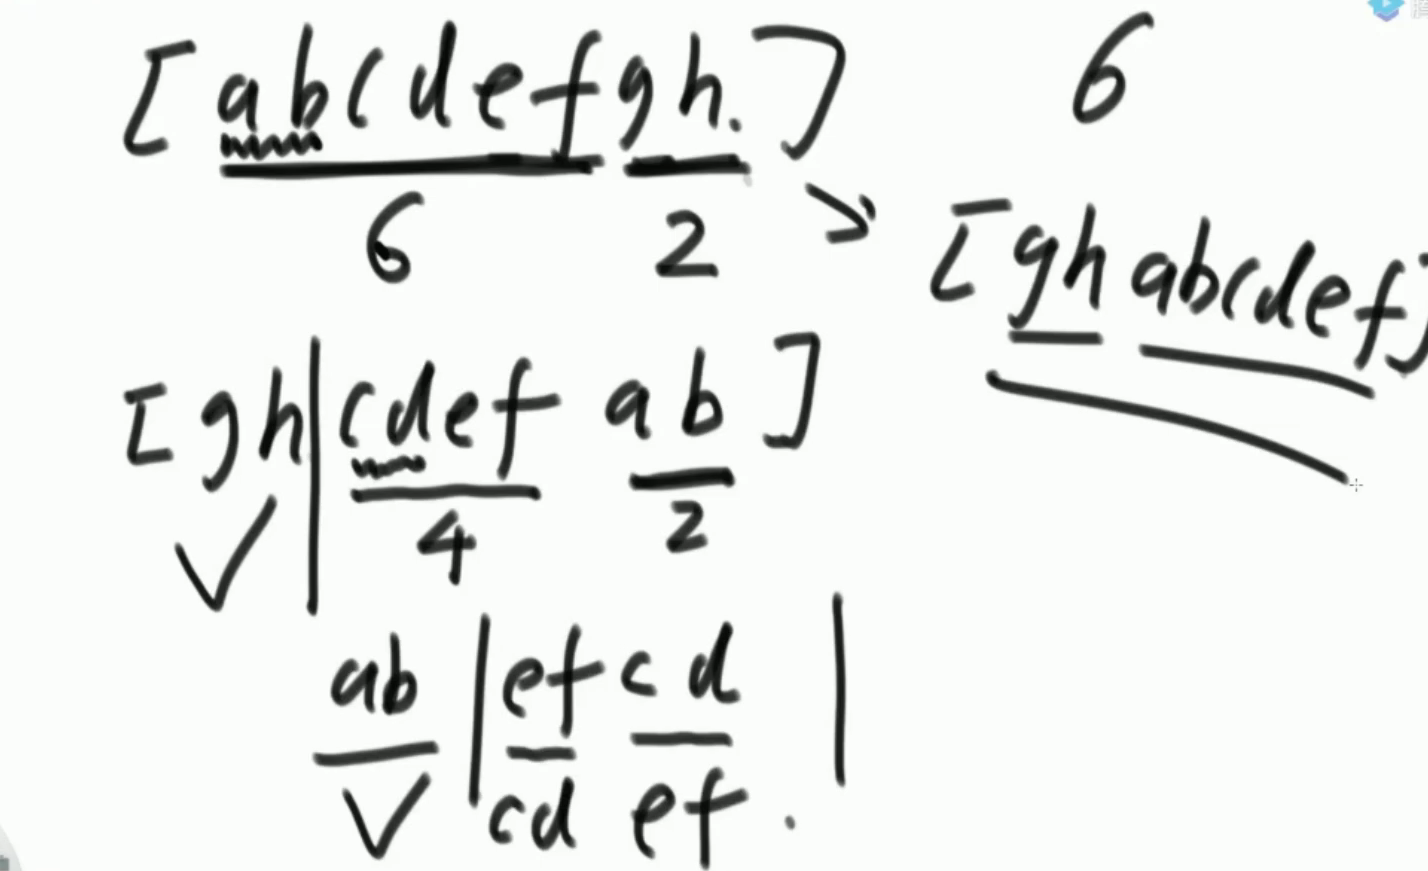 [abcdefgh.] 6
6 2
[gh abcdef]
[gh|cdef ab]
4 2
ab |ef cd |
cd ef.